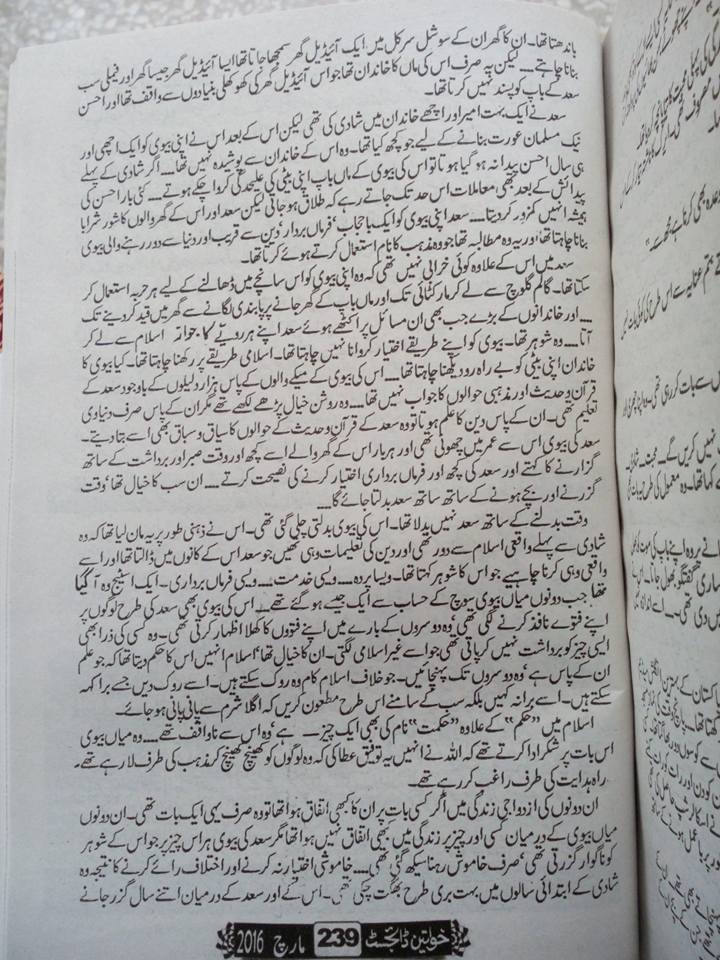 باندھتا تھا۔ ان کا گھر ان کے سوشل سرکل میں ایک آئیڈیل گھر سمجھا جاتا تھا ایسا آئیڈیل گھر جیسا گھر اور فیملی سب
بنانا چاہتے ..... لیکن یہ صرف اس کی ماں کا خاندان تھا جو اس آئیڈیل گھر کی کھوکھلی بنیادوں سے واقف تھا اور احسن
سعد کے باپ کو پسند نہیں کرتا تھا۔
سعد نے ایک بہت امیر اور اچھے خاندان میں شادی کی تھی لیکن اس کے بعد اس نے اپنی بیوی کو ایک اچھی اور
نیک مسلمان عورت بنانے کے لیے جو کچھ کیا تھا۔ وہ اس کے خاندان سے پوشیدہ نہیں تھا.... اگر شادی کے پہلے
ہی سال احسن پیدا نہ ہو گیا ہوتا تو اس کی بیوی کے ماں باپ اپنی بیٹی کی علیحدگی کروا چکے ہوتے.... کئی بار احسن کی
پیدائش کے بعد بھی معاملات اس حد تک جاتے رہے کہ طلاق ہو جاتی لیکن سعد اور اس کے گھر والوں کا شور شرابا
ہمیشہ انہیں کمزور کر دیتا.... سعد اپنی بیوی کو ایک باحجاب، فرماں بردار، دین سے قریب اور دنیا سے دور رہنے والی بیوی
بنانا چاہتا تھا، اور یہ وہ مطالبہ تھا جو وہ مذہب کا نام استعمال کرتے ہوئے کرتا تھا۔
سعد میں اس کے علاوہ کوئی خرابی نہیں تھی کہ وہ اپنی بیوی کو اس سانچے میں ڈھالنے کے لیے ہر حربہ استعمال کر
سکتا تھا۔ گالم گلوچ سے لے کر مار کٹائی تک اور ماں باپ کے گھر جانے پر پابندی لگانے سے گھر میں قید کر دینے تک
.... اور خاندانوں کے بڑے جب بھی ان مسائل پر اکٹھے ہوئے سعد اپنے ہر رویے کا جواز اسلام سے لے کر
آتا.... وہ شوہر تھا۔ بیوی کو اپنے طریقے اختیار کروانا نہیں چاہتا تھا۔ اسلامی طریقے پر رکھنا چاہتا تھا۔ کیا بیوی کا
خاندان اپنی بیٹی کو بے راہ رو دیکھنا چاہتا تھا.... اس کی بیوی کے میکے والوں کے پاس ہزار دلیلوں کے باوجود سعد کے
قرآن و حدیث اور مذہبی حوالوں کا جواب نہیں تھا.... وہ روشن خیال پڑھے لکھے تھے مگر ان کے پاس صرف دنیاوی
تعلیم تھی۔ ان کے پاس دین کا علم ہوتا تو وہ سعد کے قرآن و حدیث کے حوالوں کا سیاق و سباق بھی اسے بتا دیتے۔
سعد کی بیوی اس سے عمر میں چھوٹی تھی اور ہر بار اس کے گھر والے اسے کچھ اور وقت صبر اور برداشت کے ساتھ
گزارنے کا کہتے اور سعد کی کچھ اور فرماں برداری اختیار کرنے کی نصیحت کرتے.... ان سب کا خیال تھا، وقت
گزرنے اور بچے ہونے کے ساتھ ساتھ سعد بدلتا جائے گا....
وقت بدلنے کے ساتھ سعد نہیں بدلا تھا۔ اس کی بیوی بدلتی چلی گئی تھی۔ اس نے ذہنی طور پر یہ مان لیا تھا کہ وہ
شادی سے پہلے واقعی اسلام سے دور تھی اور دین کی تعلیمات وہی تھیں جو سعد اس کے کانوں میں ڈالتا تھا اور اسے
واقعی وہی کرنا چاہیے جو اس کا شوہر کہتا تھا۔ ویسا پردہ.... ویسی خدمت.... ویسی فرماں برداری۔ ایک اسٹیج وہ آ گیا
تھا، جب دونوں میاں بیوی سوچ کے حساب سے ایک جیسے ہو گئے تھے.... اس کی بیوی بھی سعد کی طرح لوگوں پر
اپنے فتوے نافذ کرنے لگی تھی، وہ دوسروں کے بارے میں اپنے فتووں کا کھلا اظہار کرتی تھی۔ وہ کسی کی ذرا بھی
ایسی چیز کو برداشت نہیں کر پاتی تھی جو اسے غیر اسلامی لگتی۔ ان کا خیال تھا، اسلام انہیں اس کا حکم دیتا تھا کہ جو علم
ان کے پاس ہے، وہ دوسروں تک پہنچائیں۔ جو خلاف اسلام کام وہ روک سکتے ہیں۔ اسے روک دیں جسے برا کہہ
سکتے ہیں۔ اسے برا نہ کہیں بلکہ سب کے سامنے اس طرح مطعون کریں کہ اگلا شرم سے پانی پانی ہو جائے۔
اسلام میں ”حکم“ کے علاوہ ”حکمت“ نام کی بھی ایک چیز.... ہے، وہ اس سے ناواقف تھے.... وہ میاں بیوی
اس بات پر شکر ادا کرتے تھے کہ اللہ نے انہیں یہ توفیق عطا کی کہ وہ لوگوں کو کھینچ کھینچ کر مذہب کی طرف لا رہے تھے۔
راہ ہدایت کی طرف راغب کر رہے تھے۔
ان دونوں کی ازدواجی زندگی میں اگر کسی بات پر ان کا کبھی اتفاق ہوا تھا تو وہ صرف یہی ایک بات تھی۔ ان دونوں
میاں بیوی کے درمیان کسی اور چیز پر زندگی میں کبھی اتفاق نہیں ہوا تھا مگر سعد کی بیوی ہر اس چیز پر جو اس کے شوہر
کو ناگوار گزرتی تھی، صرف خاموش رہنا سیکھ گئی تھی.... خاموشی اختیار نہ کرنے اور اختلاف رائے کرنے کا نتیجہ وہ
شادی کے ابتدائی سالوں میں بہت بری طرح بھگت چکی تھی۔ اس کے اور سعد کے درمیان اتنے سال گزر جانے
خواتین ڈائجسٹ 239 مارچ 2016